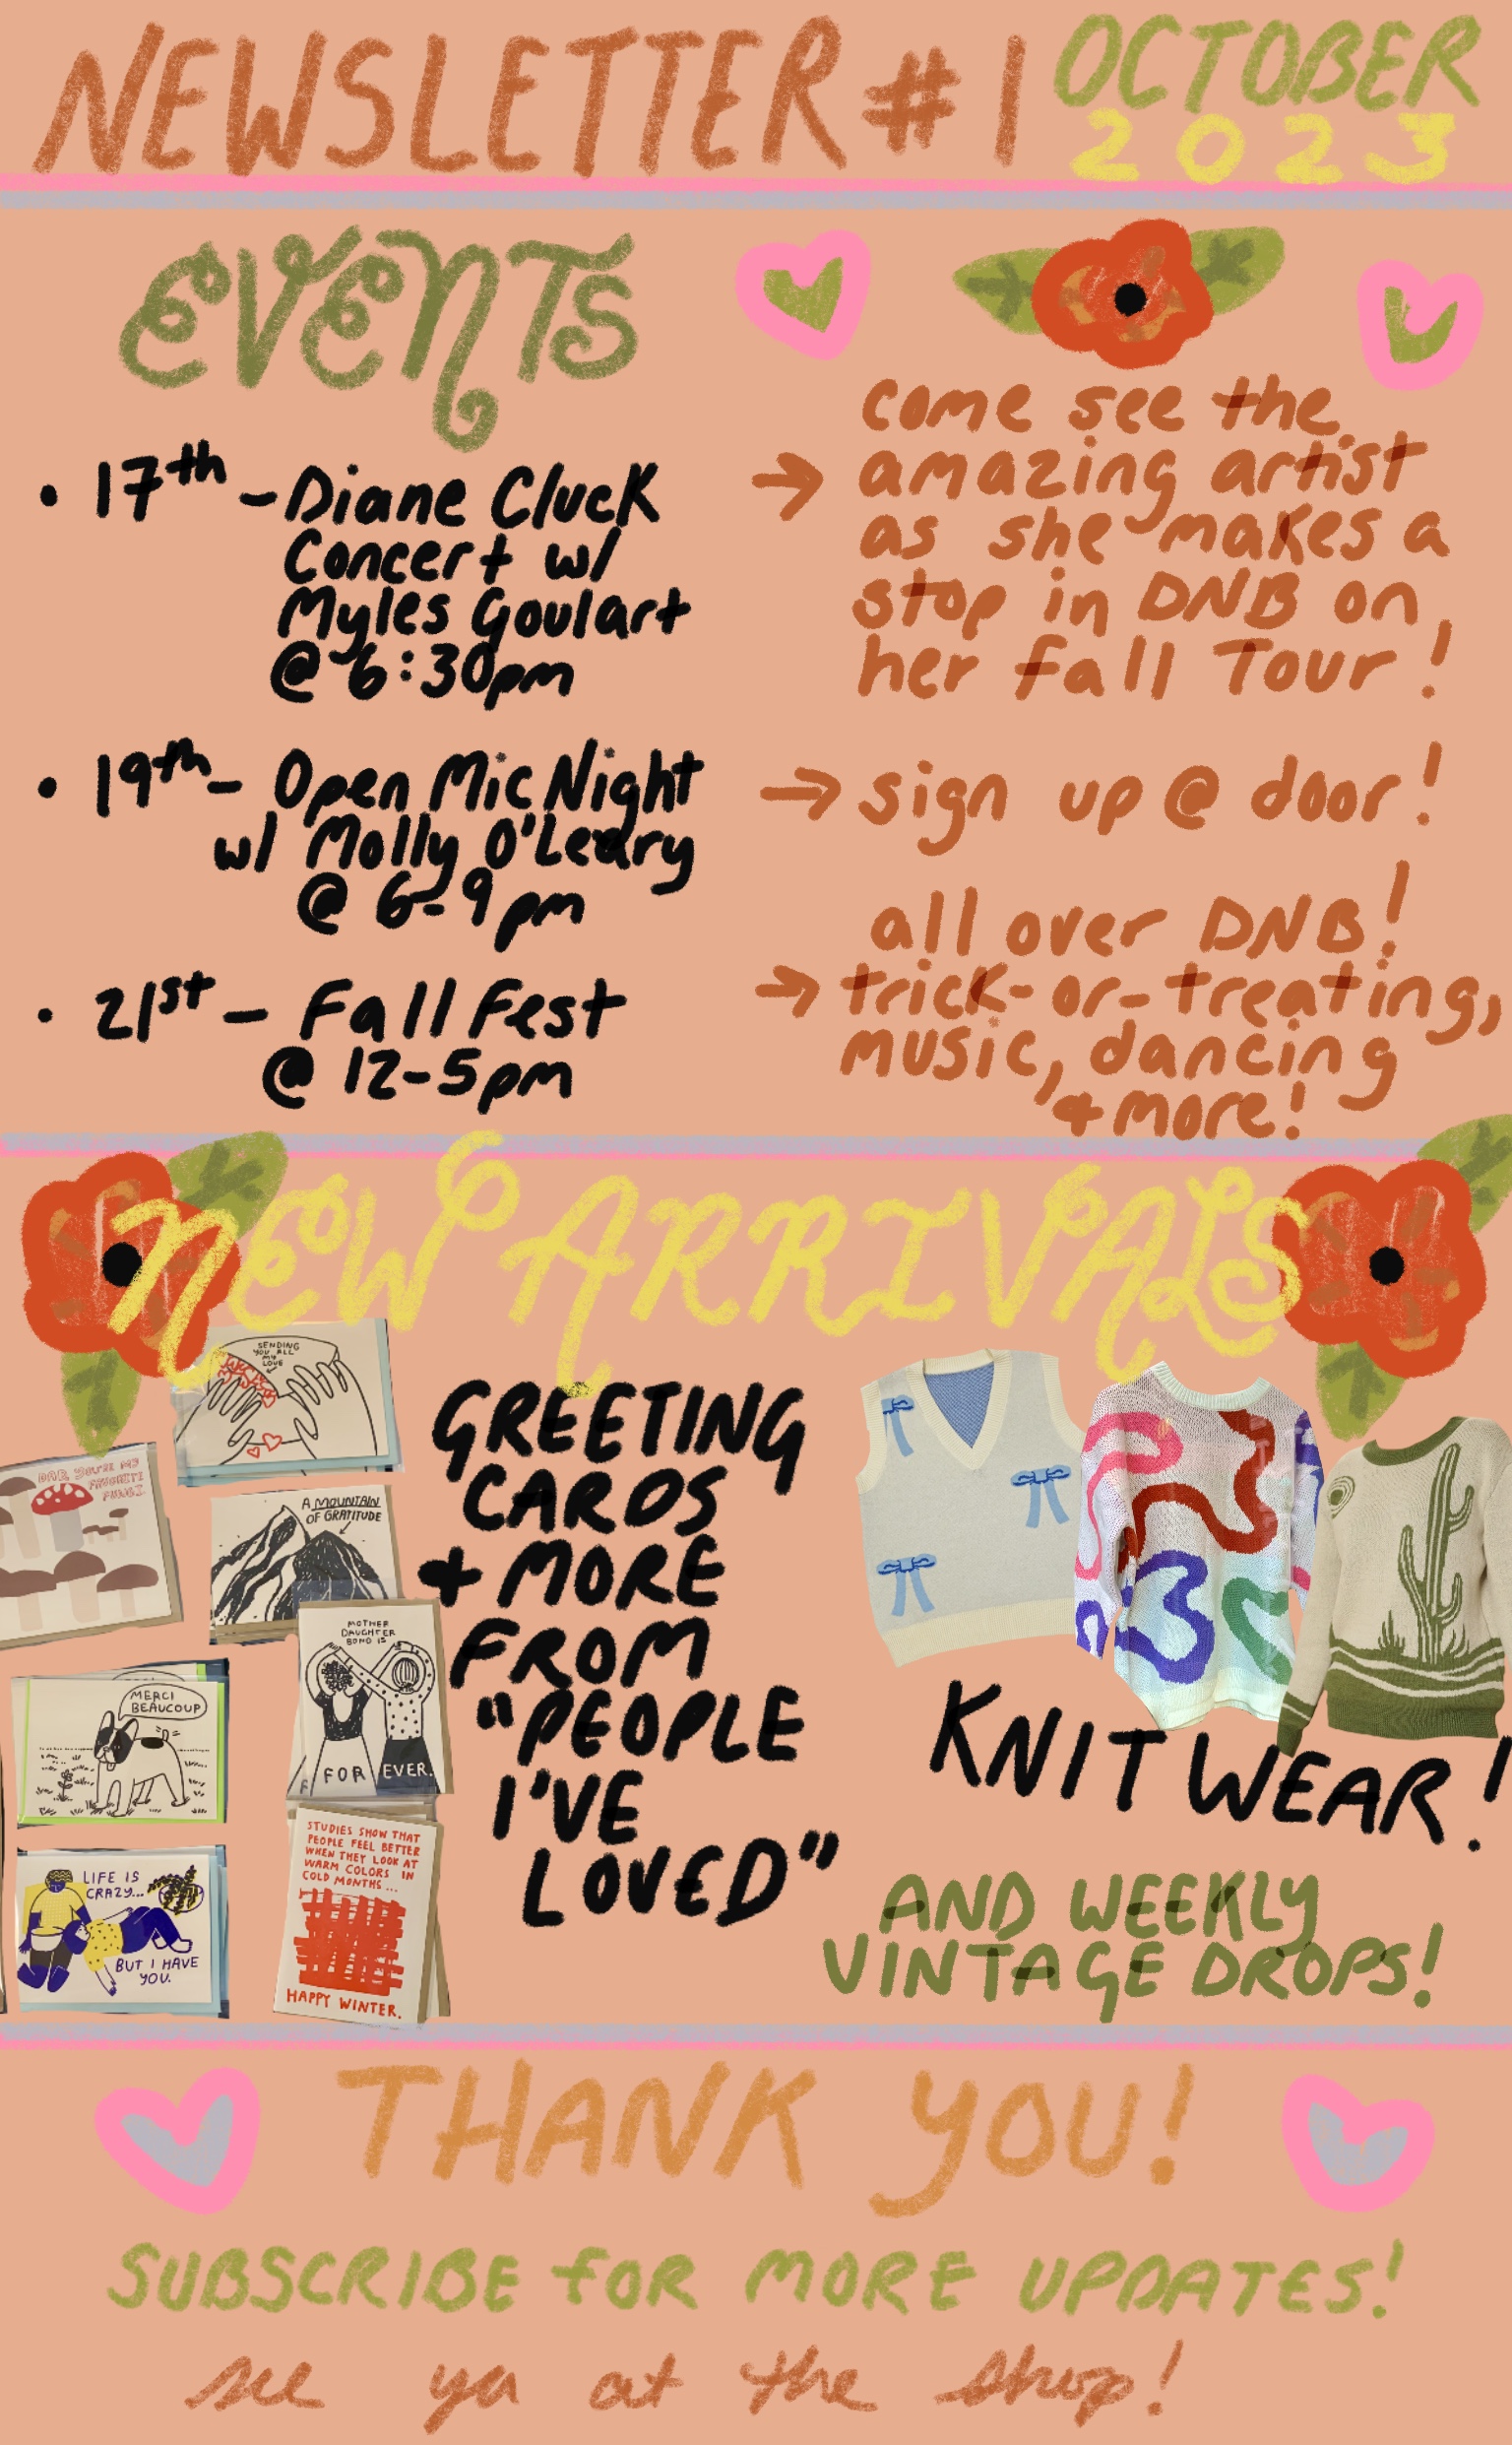 NEWSLETTER #1
OCTOBER
2023
EVENTS
• 17th - Diane Cluck
Concert w/
Myles Goulart
@ 6:30pm
come see the
→ amazing artist
as she makes a
stop in DNB on
her fall Tour!
• 19th - Open Mic Night
w/ Molly O'Leary
@ 6-9pm
→ sign up @ door!
• 21st - Fall Fest
@ 12-5pm
all over DNB!
→ trick-or-treating,
music, dancing
+ more!
NEW ARRIVALS
SENDING
YOU ALL
MY
LOVE
DAD, YOU'RE MY
FAVORITE
FUNGI.
A MOUNTAIN
OF GRATITUDE
MOTHER
DAUGHTER
BOND IS
FOR EVER.
MERCI
BEAUCOUP
LIFE IS
CRAZY...
BUT I HAVE
YOU.
STUDIES SHOW THAT
PEOPLE FEEL BETTER
WHEN THEY LOOK AT
WARM COLORS IN
COLD MONTHS...
HAPPY WINTER.
GREETING
CARDS
+ MORE
FROM
"PEOPLE
I'VE
LOVED"
KNITWEAR!
AND WEEKLY
VINTAGE DROPS!
THANK YOU!
SUBSCRIBE FOR MORE UPDATES!
see ya at the shop!